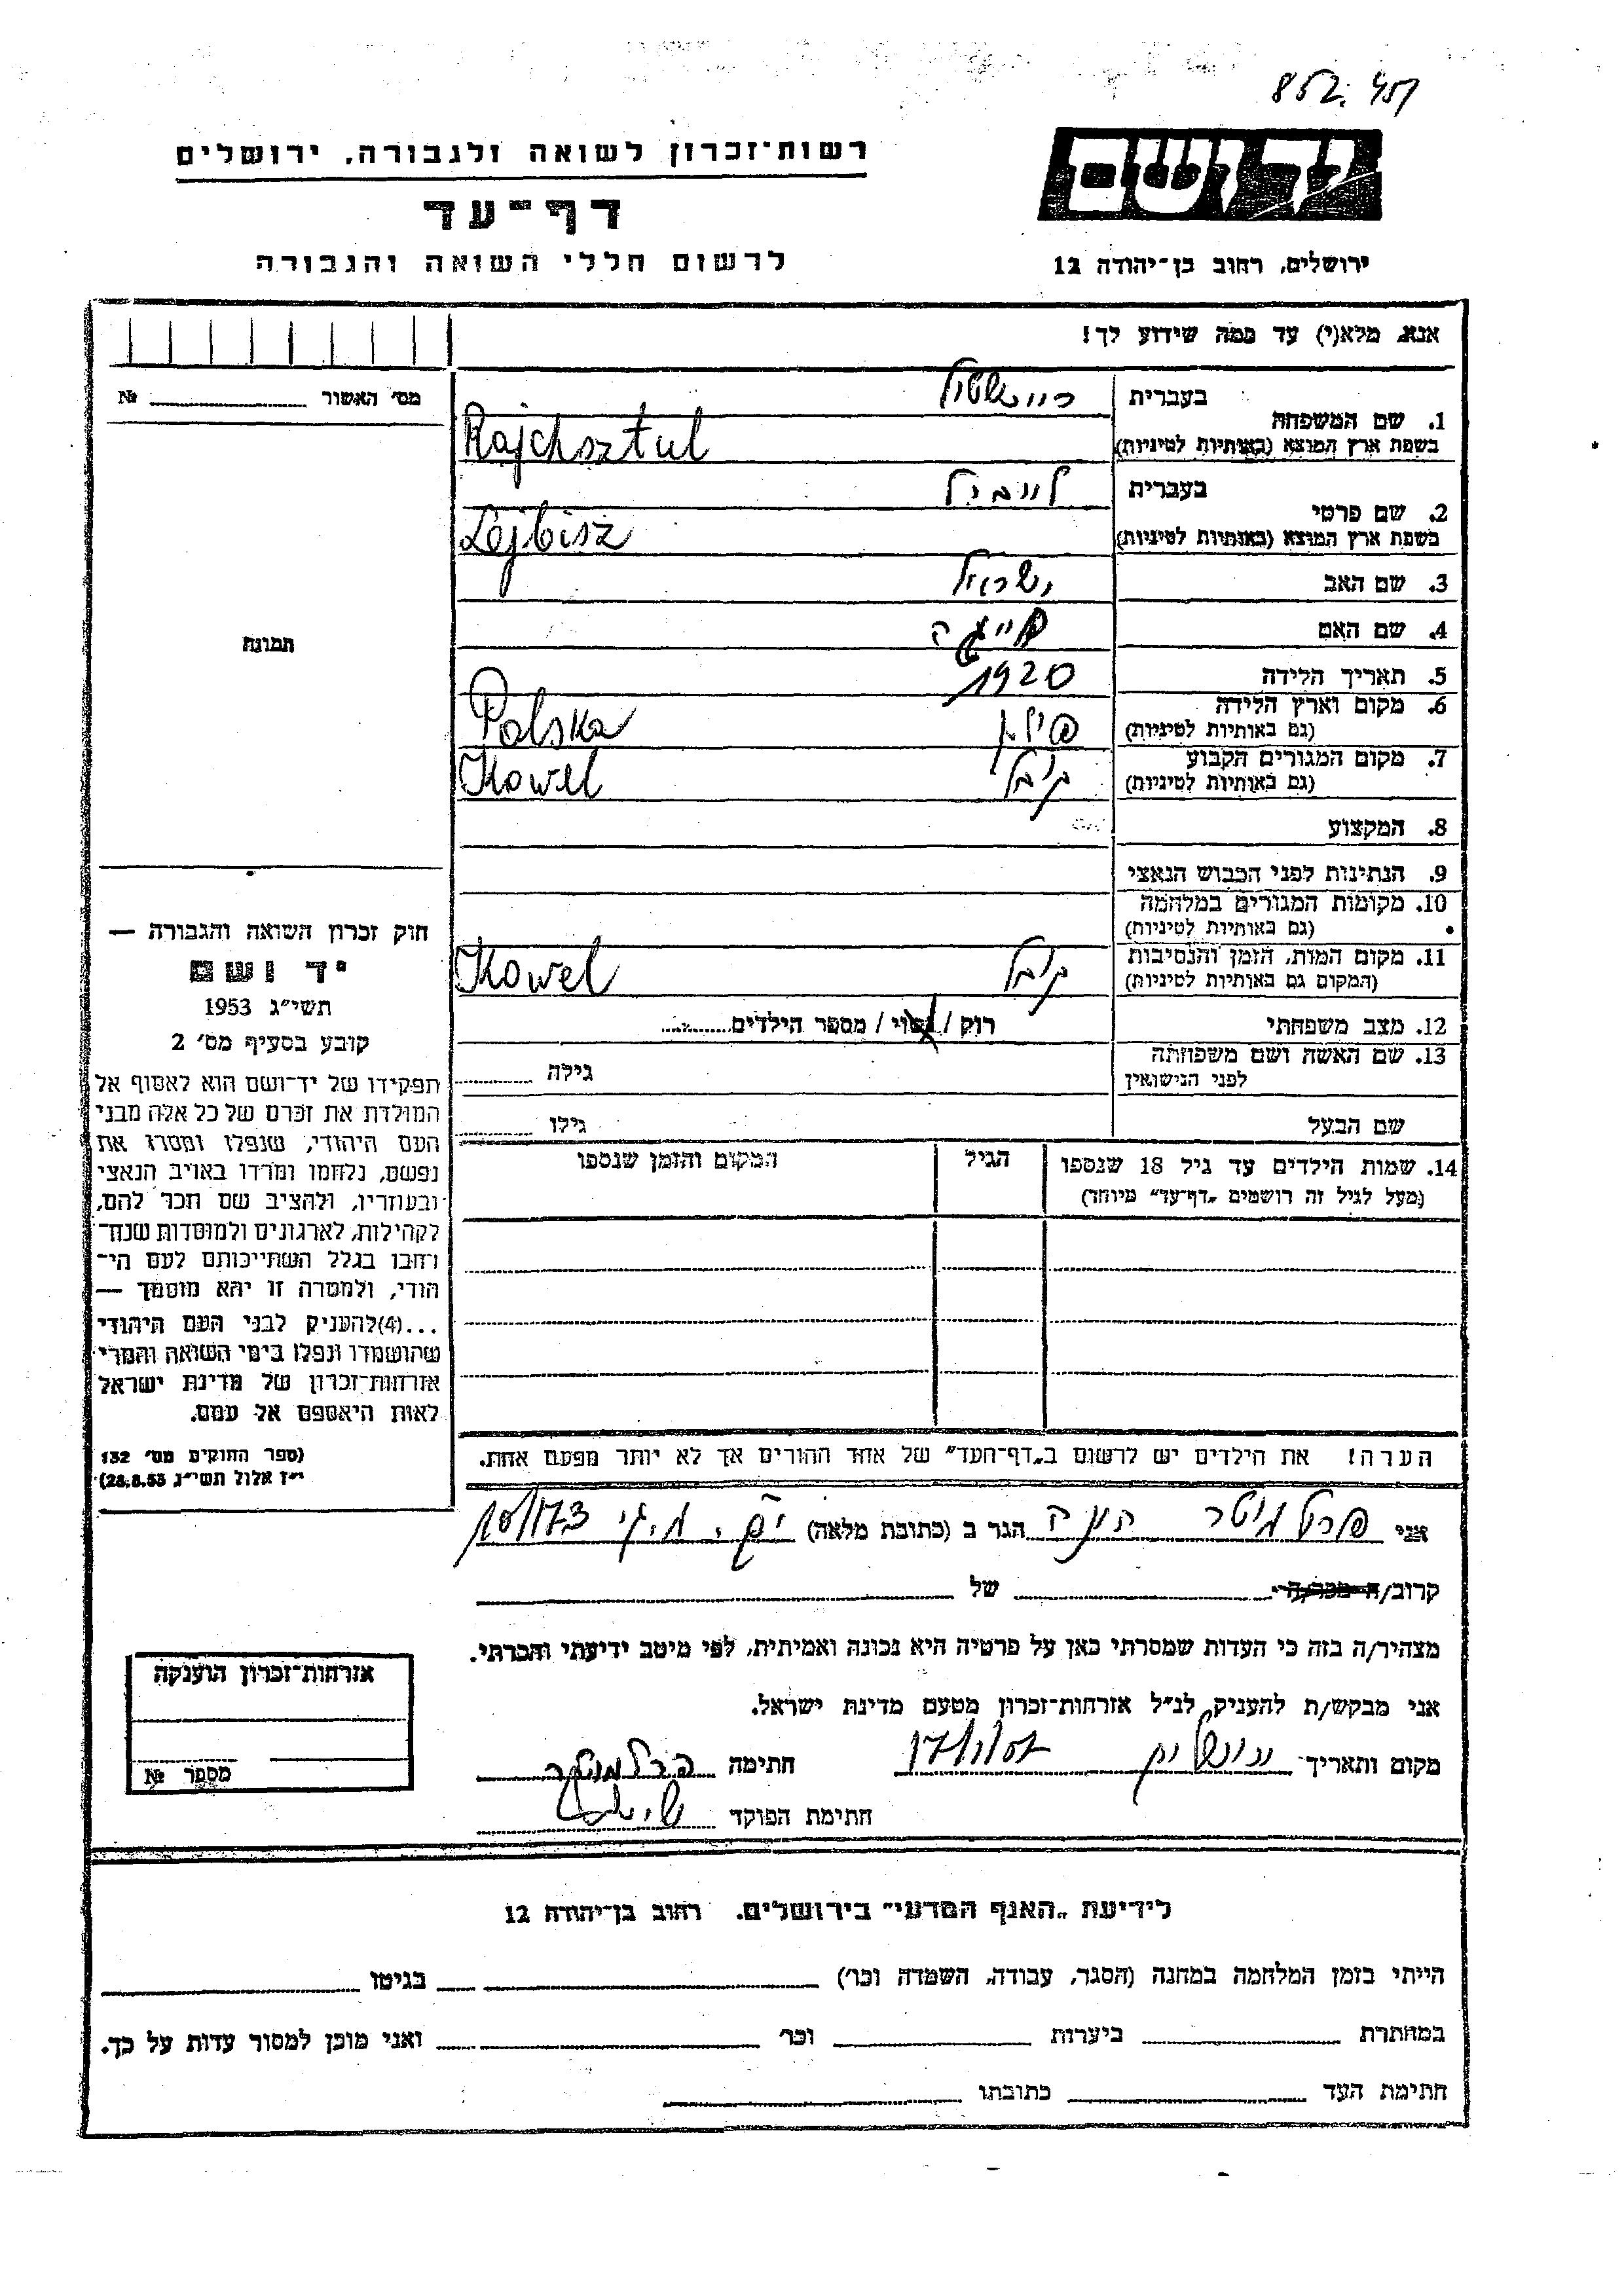 רשות־זכרון לשואה ולגבורה, ירושלים
יד ושם
דף־עד
לרשום חללי השואה והגבורה
ירושלים, רחוב בן־יהודה 12
אנא, מלא(י) עד כמה שידוע לך!
מס׳ האשור № 
1. שם המשפחה
בעברית
בשפת ארץ המוצא (באותיות לטיניות) Rajchsztul
2. שם פרטי
בעברית
בשפת ארץ המוצא (באותיות לטיניות) Lejbisz
3. שם האב ישראל
4. שם האם
5. תאריך הלידה 1920
6. מקום וארץ הלידה פולין
(גם באותיות לטיניות) Polska
7. מקום המגורים הקבוע קובל
(גם באותיות לטיניות) Kowel
8. המקצוע
9. הנתינות לפני הכבוש הנאצי
10. מקומות המגורים במלחמה
(גם באותיות לטיניות)
11. מקום המות, הזמן והנסיבות קובל
(המקום גם באותיות לטיניות) Kowel
12. מצב משפחתי רוק / נשוי / מספר הילדים
13. שם האשה ושם משפחתה
לפני הנישואין גילה
שם הבעל גילו
14. שמות הילדים עד גיל 18 שנספו הגיל המקום והזמן שנספו
(מעל לגיל זה רושמים „דף־עד״ מיוחד)
הערה! את הילדים יש לרשום ב„דף־העד״ של אחד ההורים אך לא יותר מפעם אחת.
תמונה
חוק זכרון השואה והגבורה —
יד ושם
תשי״ג 1953
קובע בסעיף מס׳ 2
תפקידו של יד־ושם הוא לאסוף אל
המולדת את זכרם של כל אלה מבני
העם היהודי, שנפלו ומסרו את
נפשם, נלחמו ומרדו באויב הנאצי
ובעוזריו, ולהציב שם וזכר להם,
לקהילות, לארגונים ולמוסדות שנח־
רבו בגלל השתייכותם לעם הי־
הודי, ולמטרה זו יהא מוסמך —
...(4)להעניק לבני העם היהודי
שהושמדו ונפלו בימי השואה והמרי
אזרחות־זכרון של מדינת ישראל
לאות היאספם אל עמם.
(ספר החוקים מס׳ 132
י״ז אלול תשי״ג 28.8.53)
אני פרלמוטר חנה הגר ב (כתובת מלאה)
קרוב/ה מכר/ה של
מצהיר/ה בזה כי העדות שמסרתי כאן על פרטיה היא נכונה ואמיתית, לפי מיטב ידיעתי והכרתי.
אני מבקש/ת להעניק לנ״ל אזרחות־זכרון מטעם מדינת ישראל.
מקום ותאריך ירושלים חתימה פרלמוטר
חתימת הפוקד
אזרחות־זכרון הוענקה
מספר №
לידיעת „האגף המדעי״ בירושלים. רחוב בן־יהודה 12
הייתי בזמן המלחמה במחנה (הסגר, עבודה, השמדה וכו׳) בגיטו
במחתרת ביערות וכו׳ ואני מוכן למסור עדות על כך.
חתימת העד כתובתו